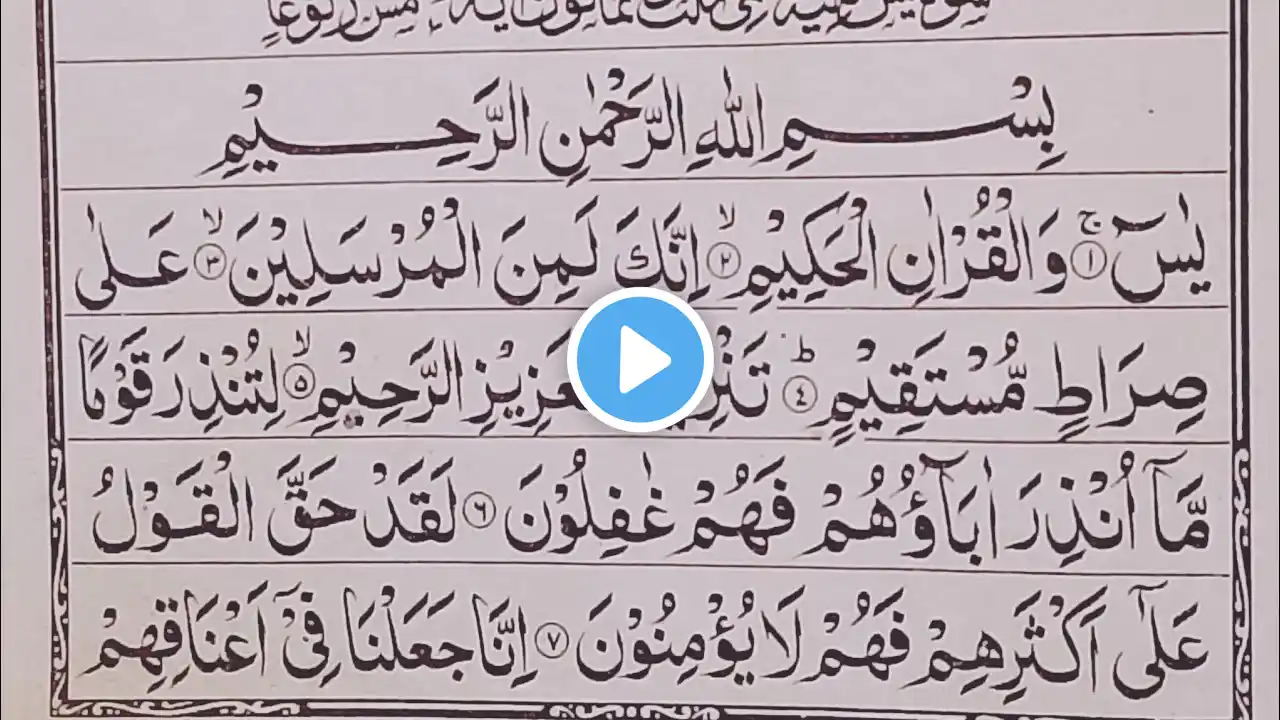 بِسْمِ اللهِ الرَّحْمٰنِ الرَّحِيْمِ
يٰسٓ ۚ﴿۱﴾ وَالْقُرْاٰنِ الْحَكِيْمِ ۙ﴿۲﴾ اِنَّكَ لَمِنَ الْمُرْسَلِيْنَ ۙ﴿۳﴾ عَلٰى
صِرَاطٍ مُّسْتَقِيْمٍ ؕ﴿۴﴾ الرَّحِيْمِ ۙ﴿۵﴾ لِتُنْذِرَ قَوْمًا
مَّآ اُنْذِرَ اٰبَآؤُهُمْ فَهُمْ غٰفِلُوْنَ ﴿۶﴾ لَقَدْ حَقَّ الْقَوْلُ
عَلٰٓى اَكْثَرِهِمْ فَهُمْ لَا يُؤْمِنُوْنَ ﴿۷﴾ اِنَّا جَعَلْنَا فِيْٓ اَعْنَاقِهِمْ